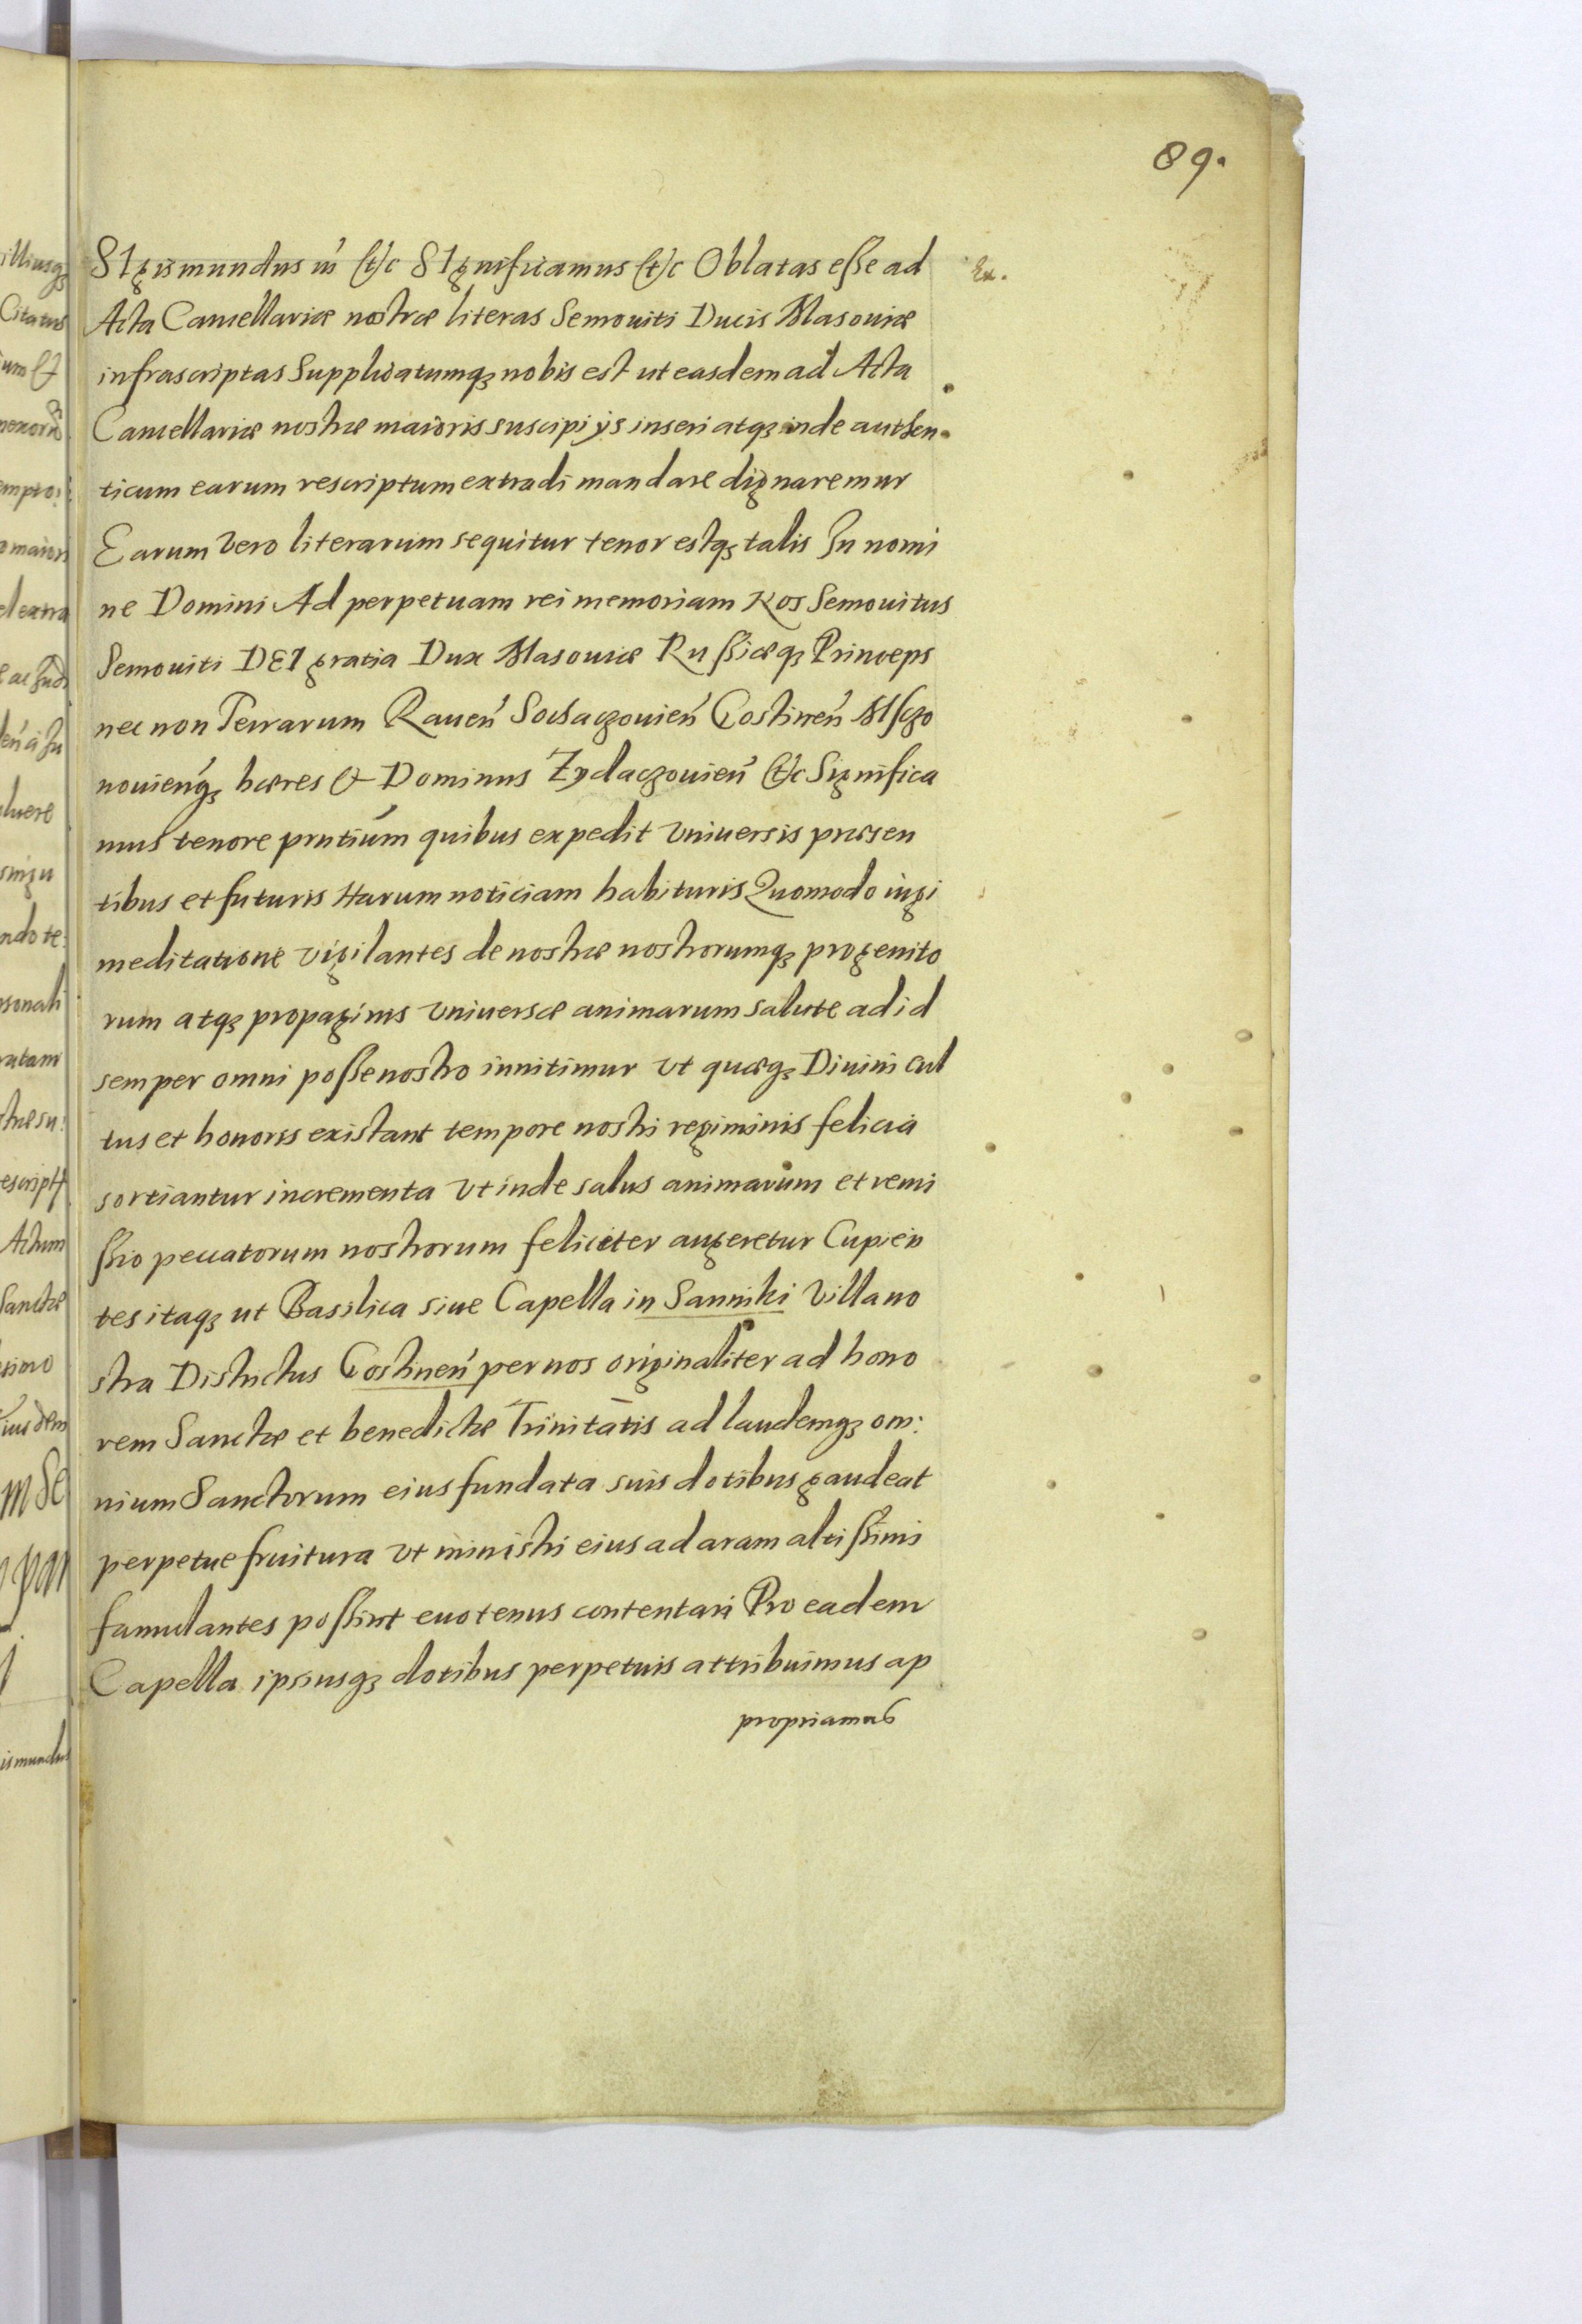 89.
SIgismundus iii &c SIgnificamus &c Oblatas esse ad
Ex.
Acta Cancellariæ nostræ literas Semouiti Ducis Masouiæ
infrascriptas Supplicatumqꝫ nobis est ut easdem ad Acta
Cancellariæ nostræ maioris suscipi ijs inseri atqꝫ inde authen
ticum earum rescriptum extradi mandare dignaremur
Earum vero literarum sequitur tenor estqꝫ talis In nomi
ne Domini Ad perpetuam rei memoriam Nos Semouitus
Semouiti DEI gratia Dux Masouiæ Russiæqꝫ Princeps
nec non Terrarum Rauen̄ Sochaczouien̄ Gostinen̄ Msczo
nouien̄qꝫ hæres & Dominus Zydaczouien̄ &c Significa
mus tenore pn̄tium quibus expedit vniuersis præsen
tibus et futuris Harum noticiam habituris Quomodo iugi
meditatione vigilantes de nostræ nostrorumqꝫ progenito
rum atqꝫ propaginis vniuersæ animarum salute ad id
semper omni posse nostro innitimur vt quæqꝫ Diuini cul
tus et honoris existant tempore nostri regiminis felicia
sortiantur incrementa vt inde salus animarum et remi
ssio peccatorum nostrorum feliciter augeretur Cupien
tes itaqꝫ ut Basilica siue Capella in Sanniki villa no
stra Districtus Gostinen̄ per nos originaliter ad hono
rem Sanctæ et benedictæ Trinitatis ad laudemqꝫ om:
nium Sanctorum eius fundata suis dotibus gaudeat
perpetue fruitura vt ministri eius ad aram altissimi
famulantes possint euotenus contentari Pro eadem
Capella ipsiusqꝫ dotibus perpetuis attribuimus ap
propriamus